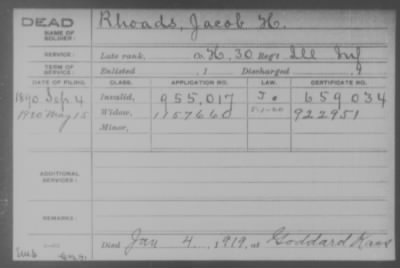 DEAD
NAME OF SOLDIER: Rhoads, Jacob H.
SERVICE: Late rank, Co. H, 30 Reg't Ill Inf
TERM OF SERVICE: Enlisted , 1 Discharged , 1
DATE OF FILING. CLASS. APPLICATION NO. LAW. CERTIFICATE NO.
1890 Sep. 4 Invalid, 955,017 J. 659034
1920 May 15 Widow, 1157660 5-1-20 922951
Minor,
ADDITIONAL SERVICES:
REMARKS:
Died Jan 4, 1919, at Goddard Kans